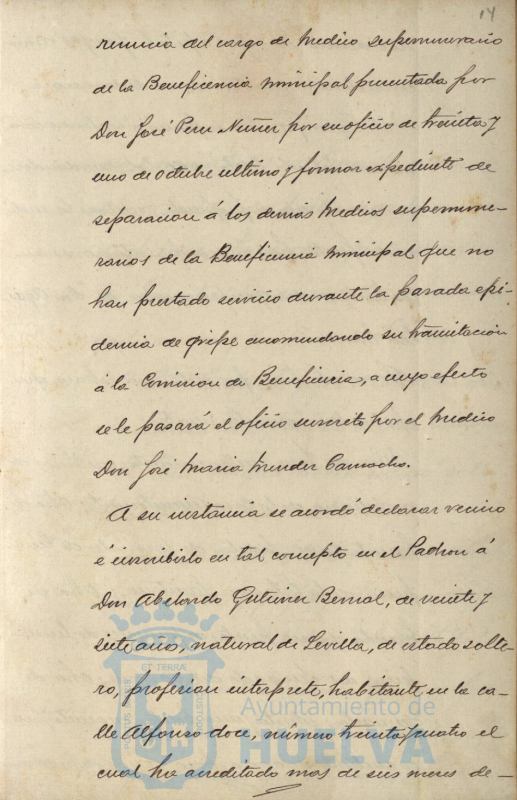 14
renuncia del cargo de Medico supernumerario
de la Beneficencia Municipal presentada por
Don José Peru Nuñez por su oficio de treinta y
uno de octubre ultimo y formar expediente de
separacion á los demás Medicos supernume-
rarios de la Beneficencia Municipal que no
han prestado servicio durante la pasada epi-
demia de gripe encomendando su tramitación
á la Comision de Beneficencia, a cuyo efecto
se le pasará el oficio suscrito por el Medico
Don José Maria Mendez Camacho.
A su instancia se acordó declarar vecino
é inscribirlo en tal concepto en el Padron á
Don Abelardo Gutierrez Bernal, de veinte y
siete años, natural de Sevilla, de estado solte-
ro, profesion interprete, habitante en la ca-
lle Alfonso doce, número treinta y cuatro el
cual ha acreditado mas de seis meses de-
PORTUS MARIS
ET TERRÆ
CUSTODIA
Ayuntamiento de
HUELVA